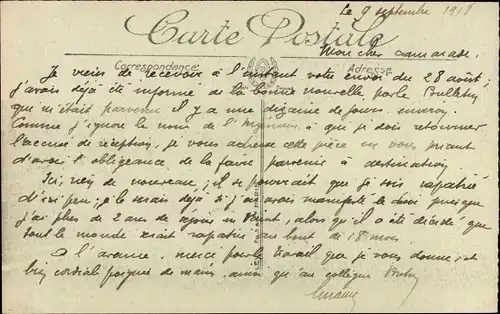 Le 9 septembre 1918
Carte Postale
Mon cher camarade.
Correspondance
Adresse
Je viens de recevoir à l'instant votre envoi du 28 août,
j'avais déjà été informé de la bonne nouvelle par le Bulletin
qui m'était parvenu il y a une dizaine de jours environ
Comme j'ignore le nom de l' à qui je dois retourner
l'accusé de réception, je vous adresse cette pièce en vous priant
d'avoir l'obligeance de la faire parvenir à destination
Ici, rien de nouveau; il se pourrait que je sois rapatrié
d'ici peu; je le serais déjà si j'avais manifesté le désir puisque
j'ai plus de 2 ans de séjour en, alors qu'il a été décidé que
tout le monde serait rapatrié au bout de 18 mois.
A l'avance, merci pour le travail que je vous donne, et
bien cordiale poignée de main, ainsi qu'au collègue